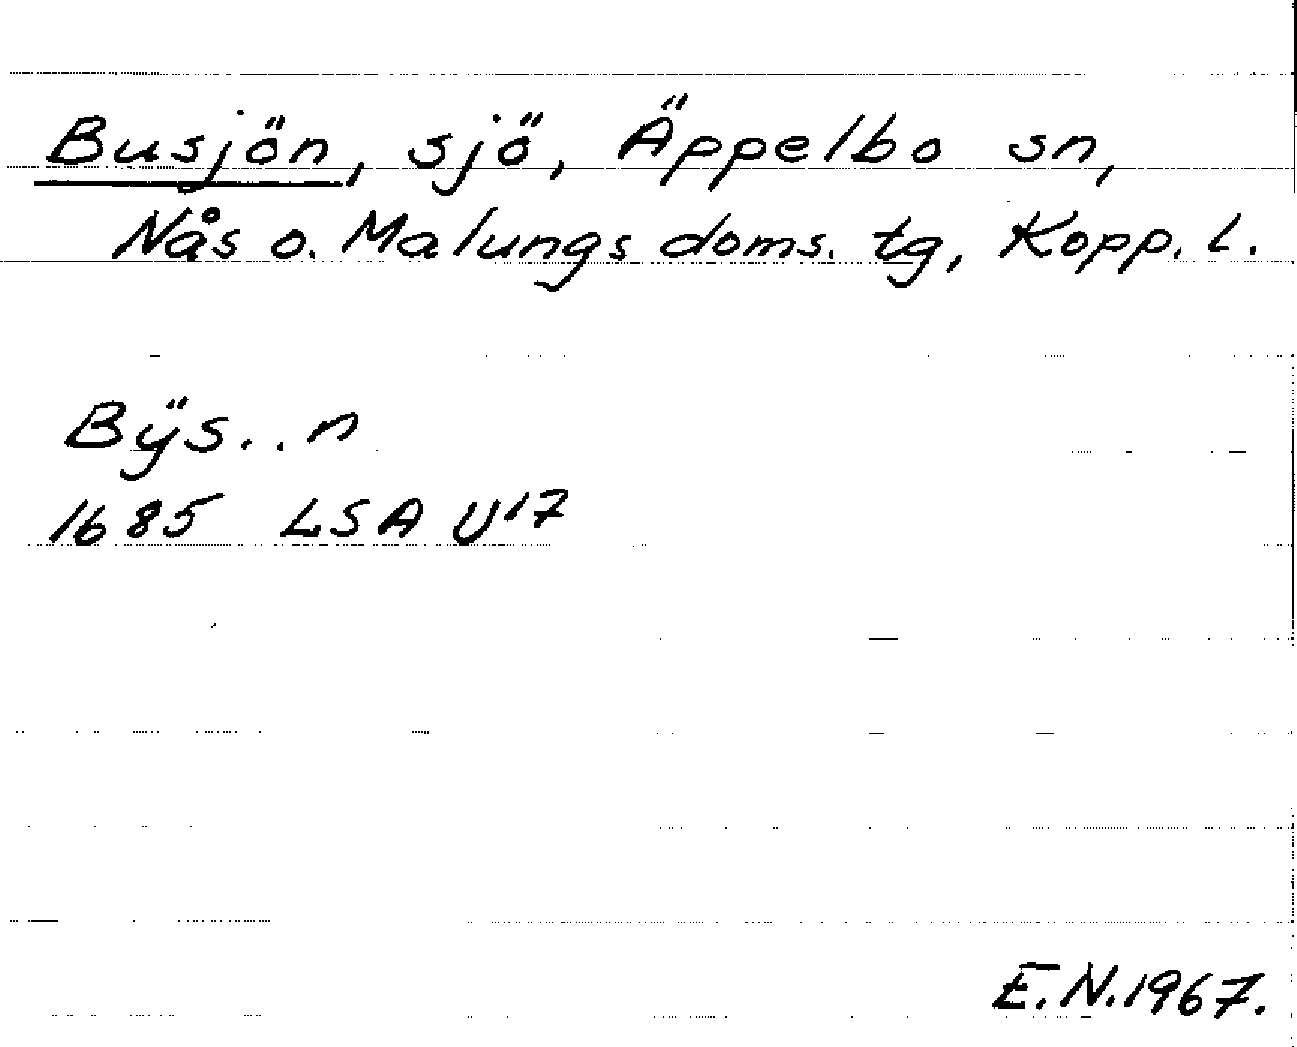 Busjön, sjö, Äppelbo sn,
Nås o. Malungs doms. tg, Kopp. l.
Bÿs..n
1685 LSA U17
E.N.1967.